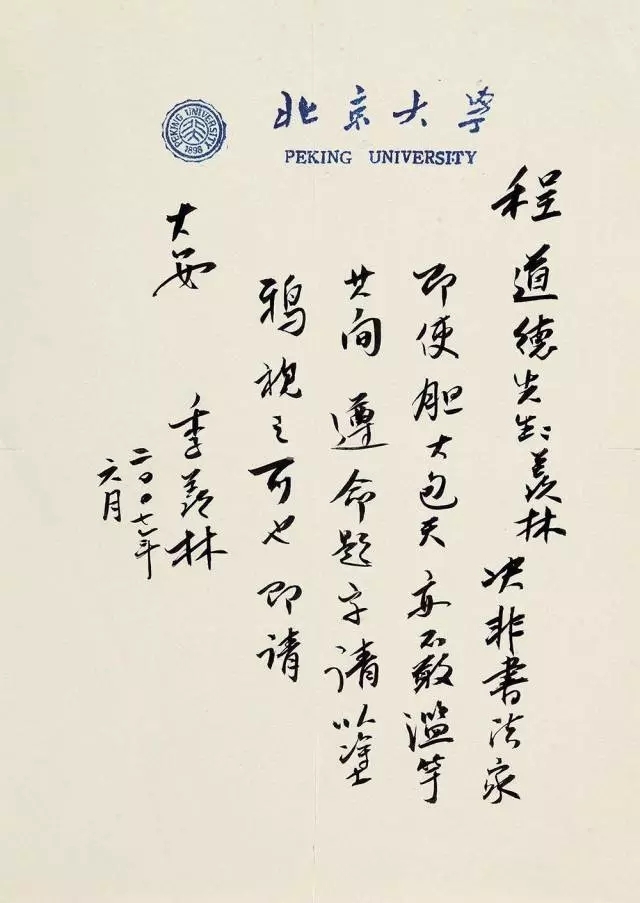 PEKING UNIVERSITY
1898
北京大學
PEKING UNIVERSITY
程道德先生：羡林决非書法家
即使胆大包天亦不敢濫竽
其间 遵命题字请以塗
鸦视之可也 即请
大安
季羡林
二〇〇七年
六月